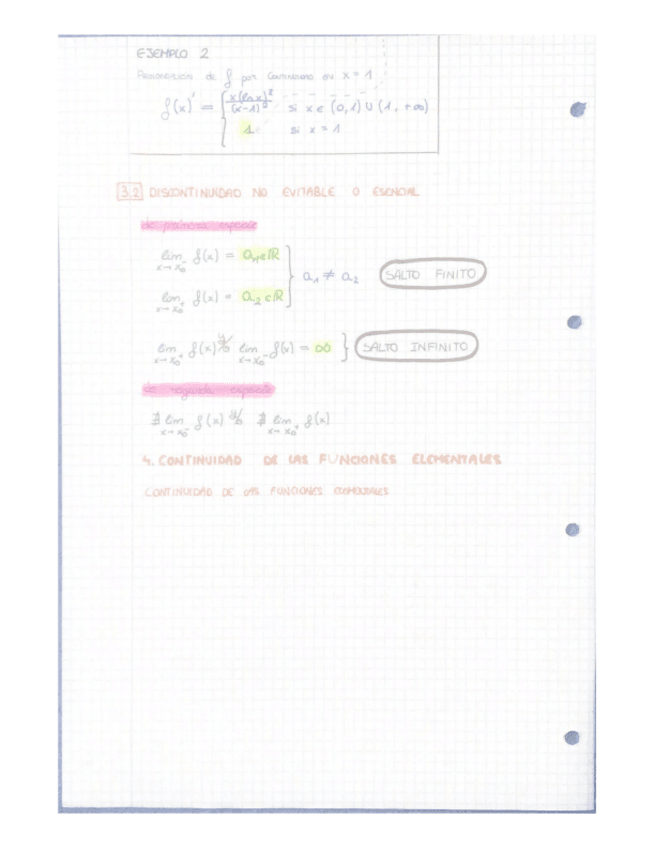 EJEMPLO 2
PROLONGACIÓN de f por CONTINUIDAD en x = 1
f(x)' = { x(ln x)² / (x-1)² si x ∈ (0,1) U (1, +∞)
1 si x = 1
3.2 DISCONTINUIDAD NO EVITABLE O ESENCIAL
de primera especie
lim x→x₀⁻ f(x) = a₁ ∈ ℝ
lim x→x₀⁺ f(x) = a₂ ∈ ℝ } a₁ ≠ a₂ SALTO FINITO
lim x→x₀⁺ f(x) y/o lim x→x₀⁻ f(x) = ∞ } SALTO INFINITO
de segunda especie
∄ lim x→x₀⁻ f(x) y/o ∄ lim x→x₀⁺ f(x)
4. CONTINUIDAD DE LAS FUNCIONES ELEMENTALES
CONTINUIDAD DE LAS FUNCIONES ELEMENTALES